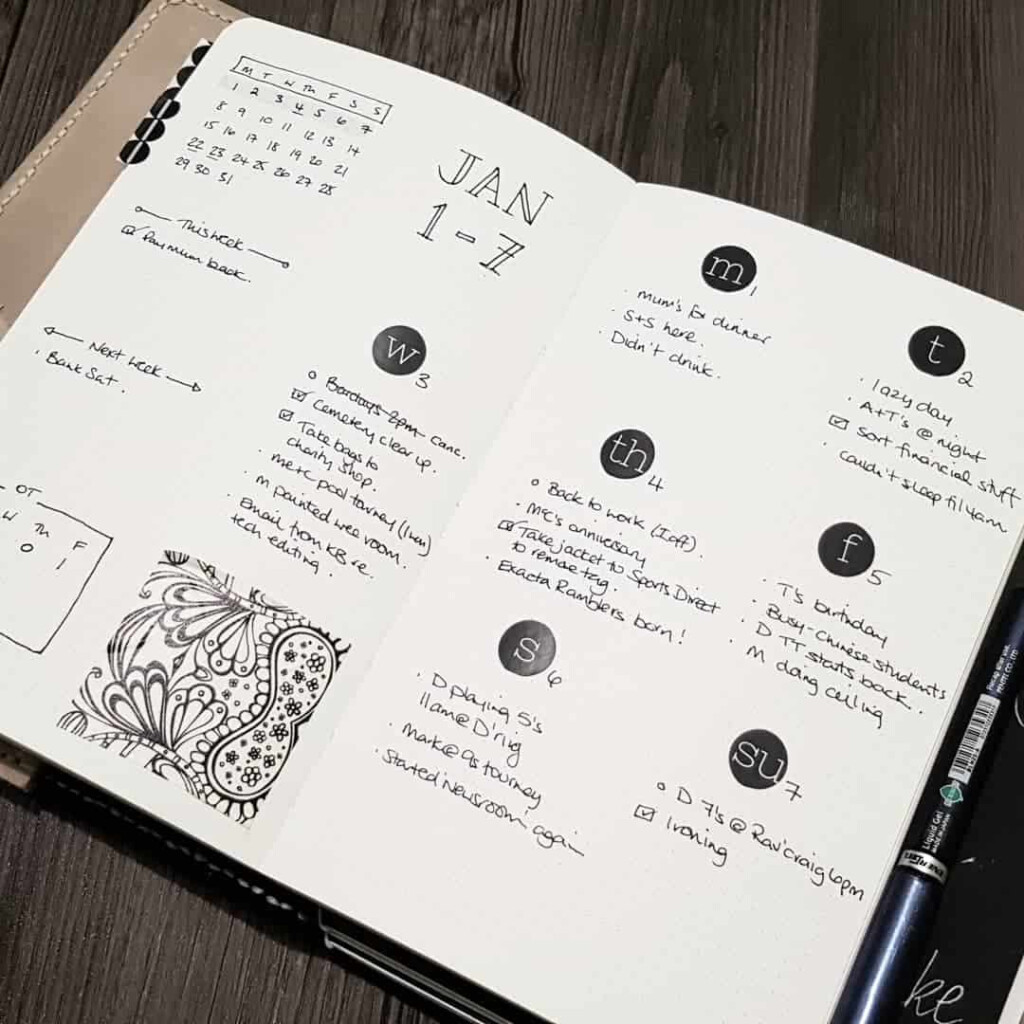 M T W Th F S S
1 2 3 4 5 6 7
8 9 10 11 12 13 14
15 16 17 18 19 20 21
22 23 24 25 26 27 28
29 30 31
JAN
1-7
This week
Pay mum back.
Next week
Bank Sat.
OT
W Th F
O 1
w 3
Barclays 2pm canc.
Cemetery clear up.
Take bags to
charity shop.
me+C pool tourney (1Win)
M painted wee room.
Email from KB re.
tech editing.
m 1
Mum's for dinner
S+S here.
Didn't drink.
t 2
lazy day
A+T's @ night
Sort financial stuff
couldn't sleep til 4am
th 4
Back to work (I off).
M+C's anniversary
Take jacket to Sports Direct
to remove tag.
Exacta Ramblers born!
f 5
T's birthday
Busy-chinese students
D TT starts back.
M doing ceiling
s 6
D playing 5's
11am @ D'rig
Mark @ 9s tourney
Started 'Newsroom' again
su 7
D 7's @ Rav'craig 6pm
Ironing
Liquid Gel
ke